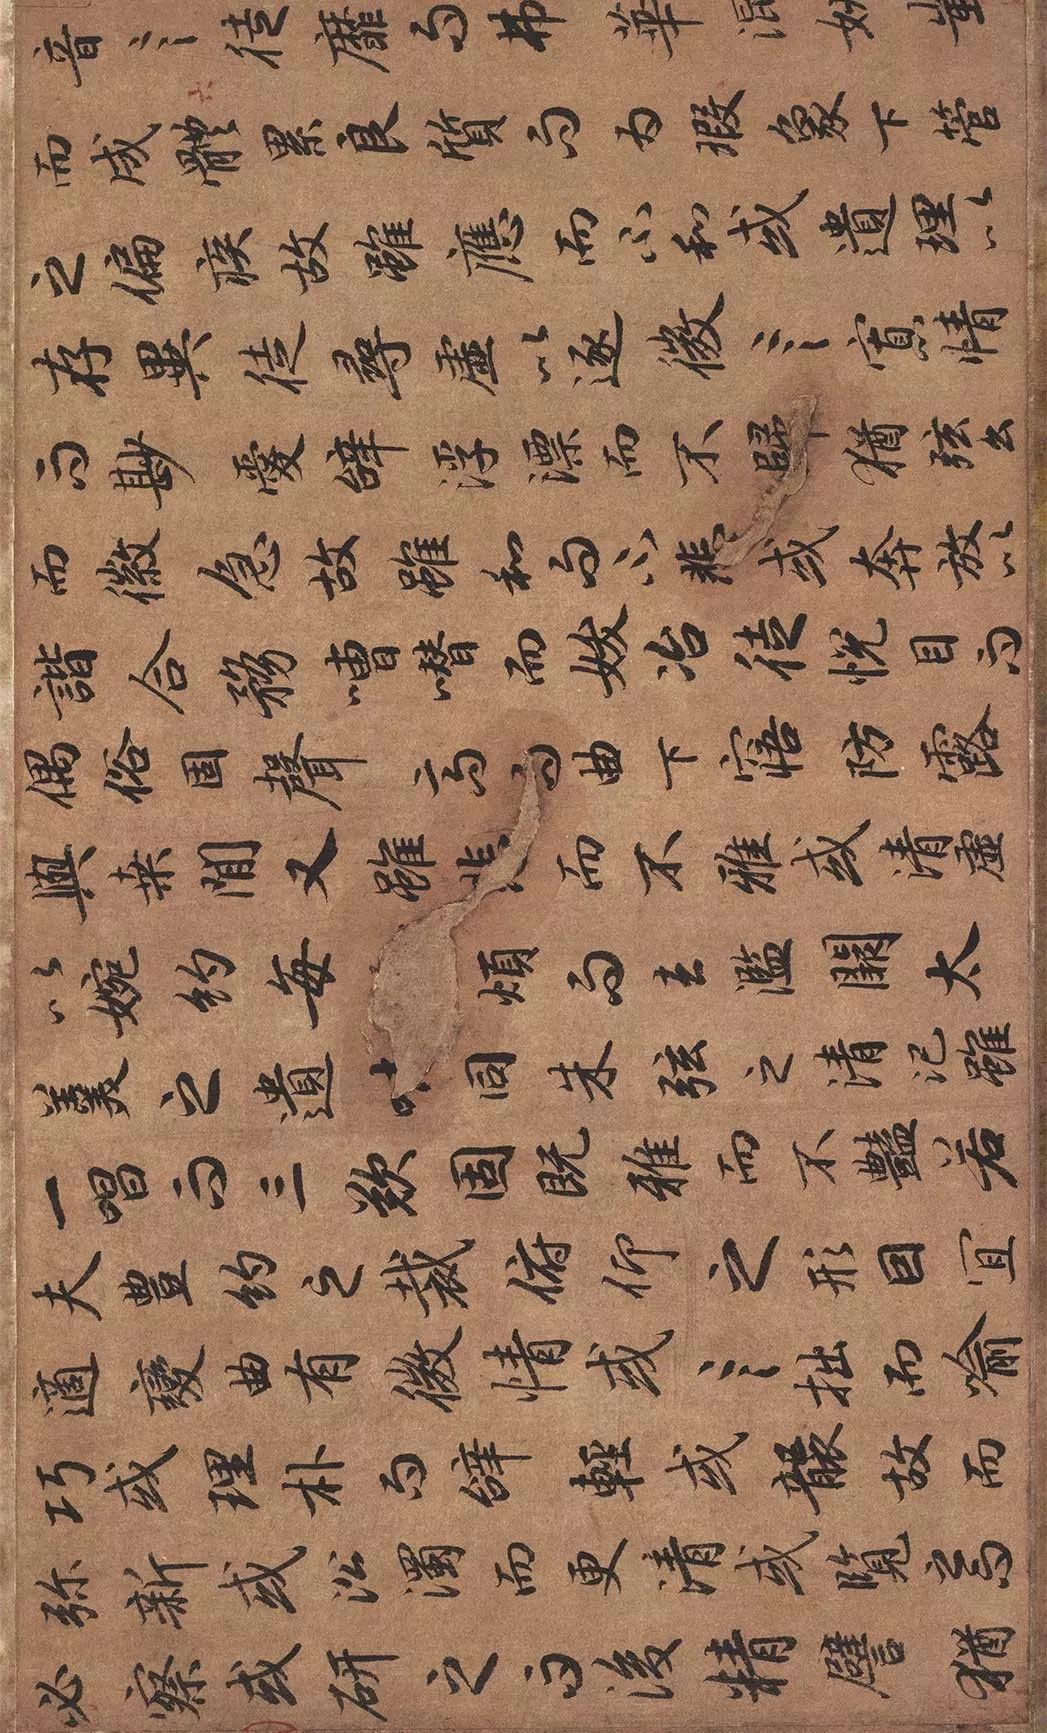 音言徒靡而弗華混妍蚩
而成體累良質而為瑕象下管
之偏疾故雖應而不和或遺理以
存異徒尋虛以逐微言寡情
而尠愛辭浮漂而不歸猶弦么
而徽急故雖和而不悲或奔放以
諧合務嘈囋而妖冶徒悅目而
偶俗固聲高而曲下寤防露
與桑間又雖悲而不雅或清虛
以婉約每煩而去濫闕太
羹之遺味同朱弦之清氾雖
一唱而三歎固既雅而不豔若
夫豐約之裁俯仰之形因宜
適變曲有微情或言拙而喻
巧或理朴而辭輕或襲故而
弥新或沿濁而更清或覽之而
必察或研之而後精譬猶